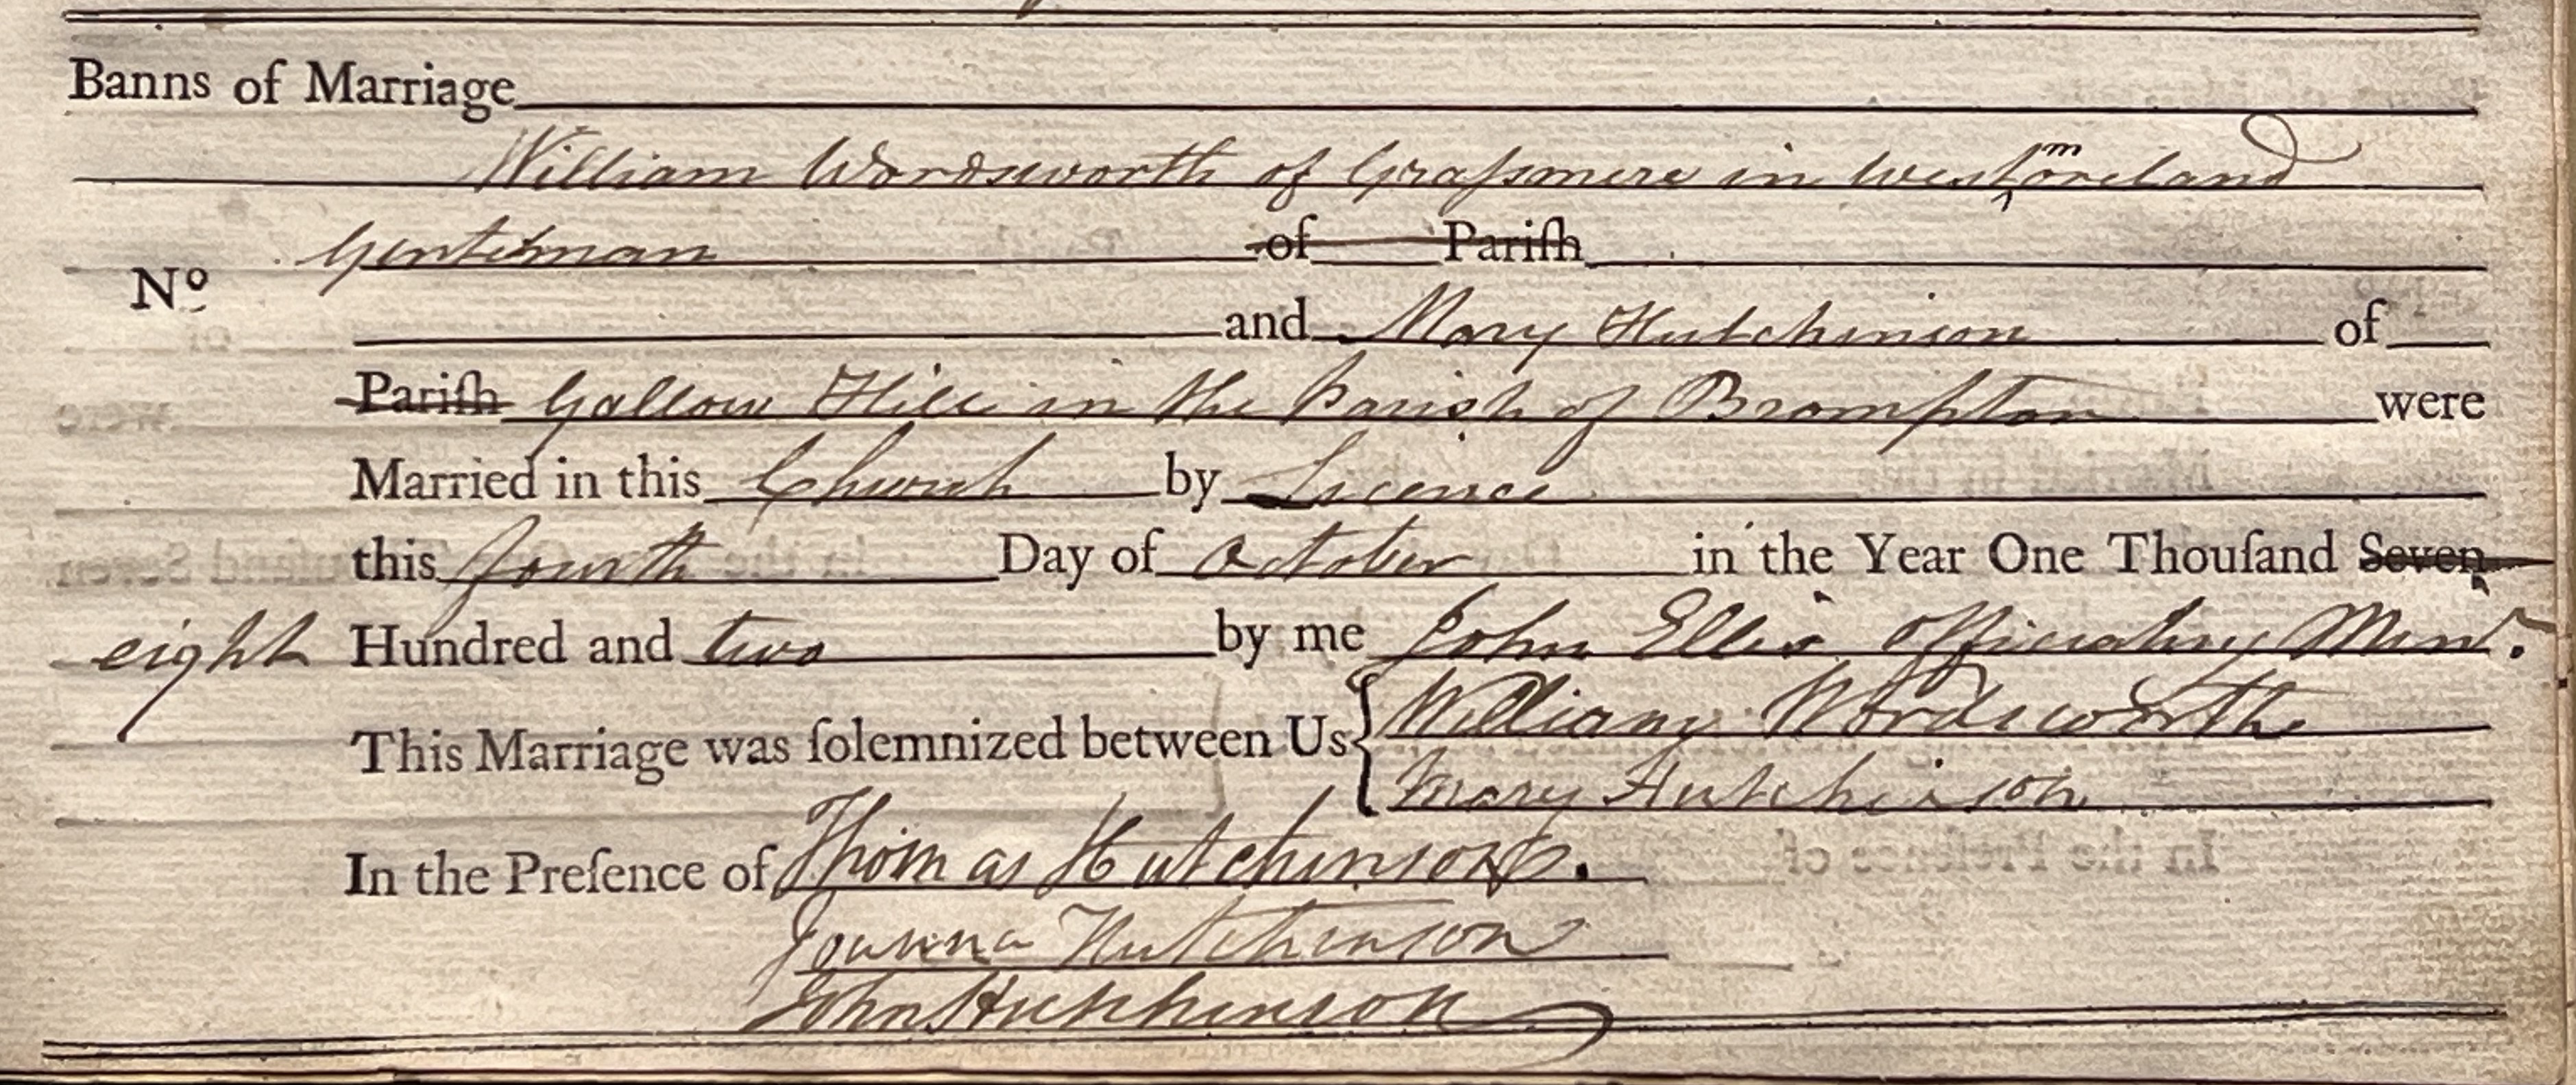 Banns of Marriage
William Wordsworth of Graſsmere in Westmoreland
Gentleman of Pariſh
Nº
and Mary Hutchinson of
Pariſh Gallow Hill in the Parish of Brompton were
Married in this Church by Licence
this fourth Day of October in the Year One Thouſand Seven
eight Hundred and two by me John Ellis Officiating Minr.
This Marriage was ſolemnized between Us { William Wordsworth
Mary Hutchinson
In the Preſence of Thomas Hutchinson.
Joanna Hutchinson
John Hutchinson